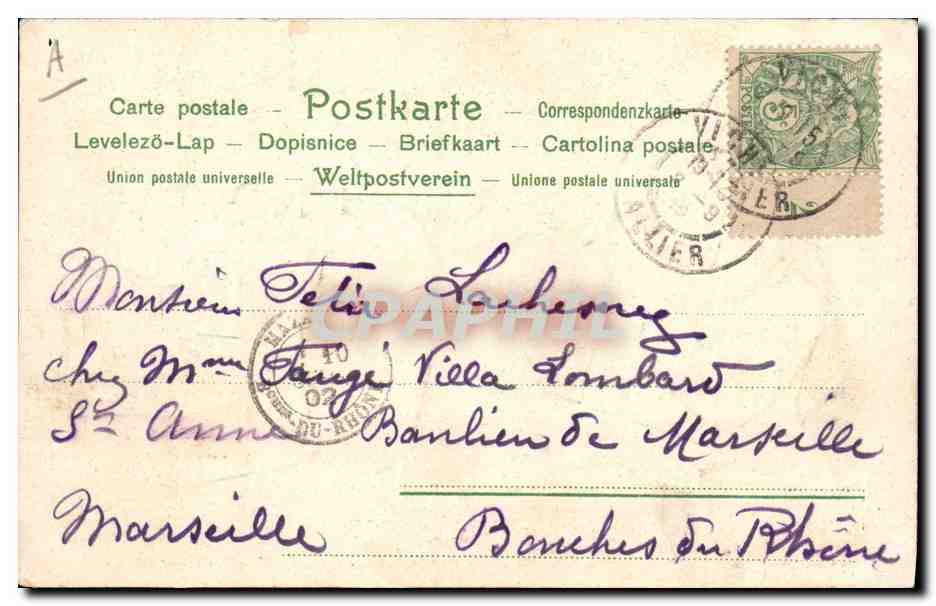 A
Carte postale – Postkarte – Correspondenzkarte
Levelezö-Lap – Dopisnice – Briefkaart – Cartolina postale
Union postale universelle – Weltpostverein – Unione postale universale
VICHY
ALLIER
Monsieur Felix
chez Mme Fauge Villa Lombard
10
02
Bouches-DU-RHÔNE
Ste Anne Banlieu de Marseille
Marseille Bouches du Rhône
CPAPHIL